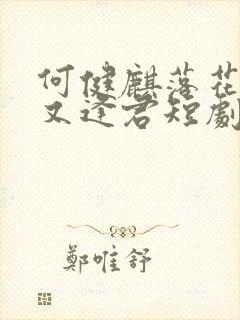 何健麒落花
又逢君短劇
鄭唯舒